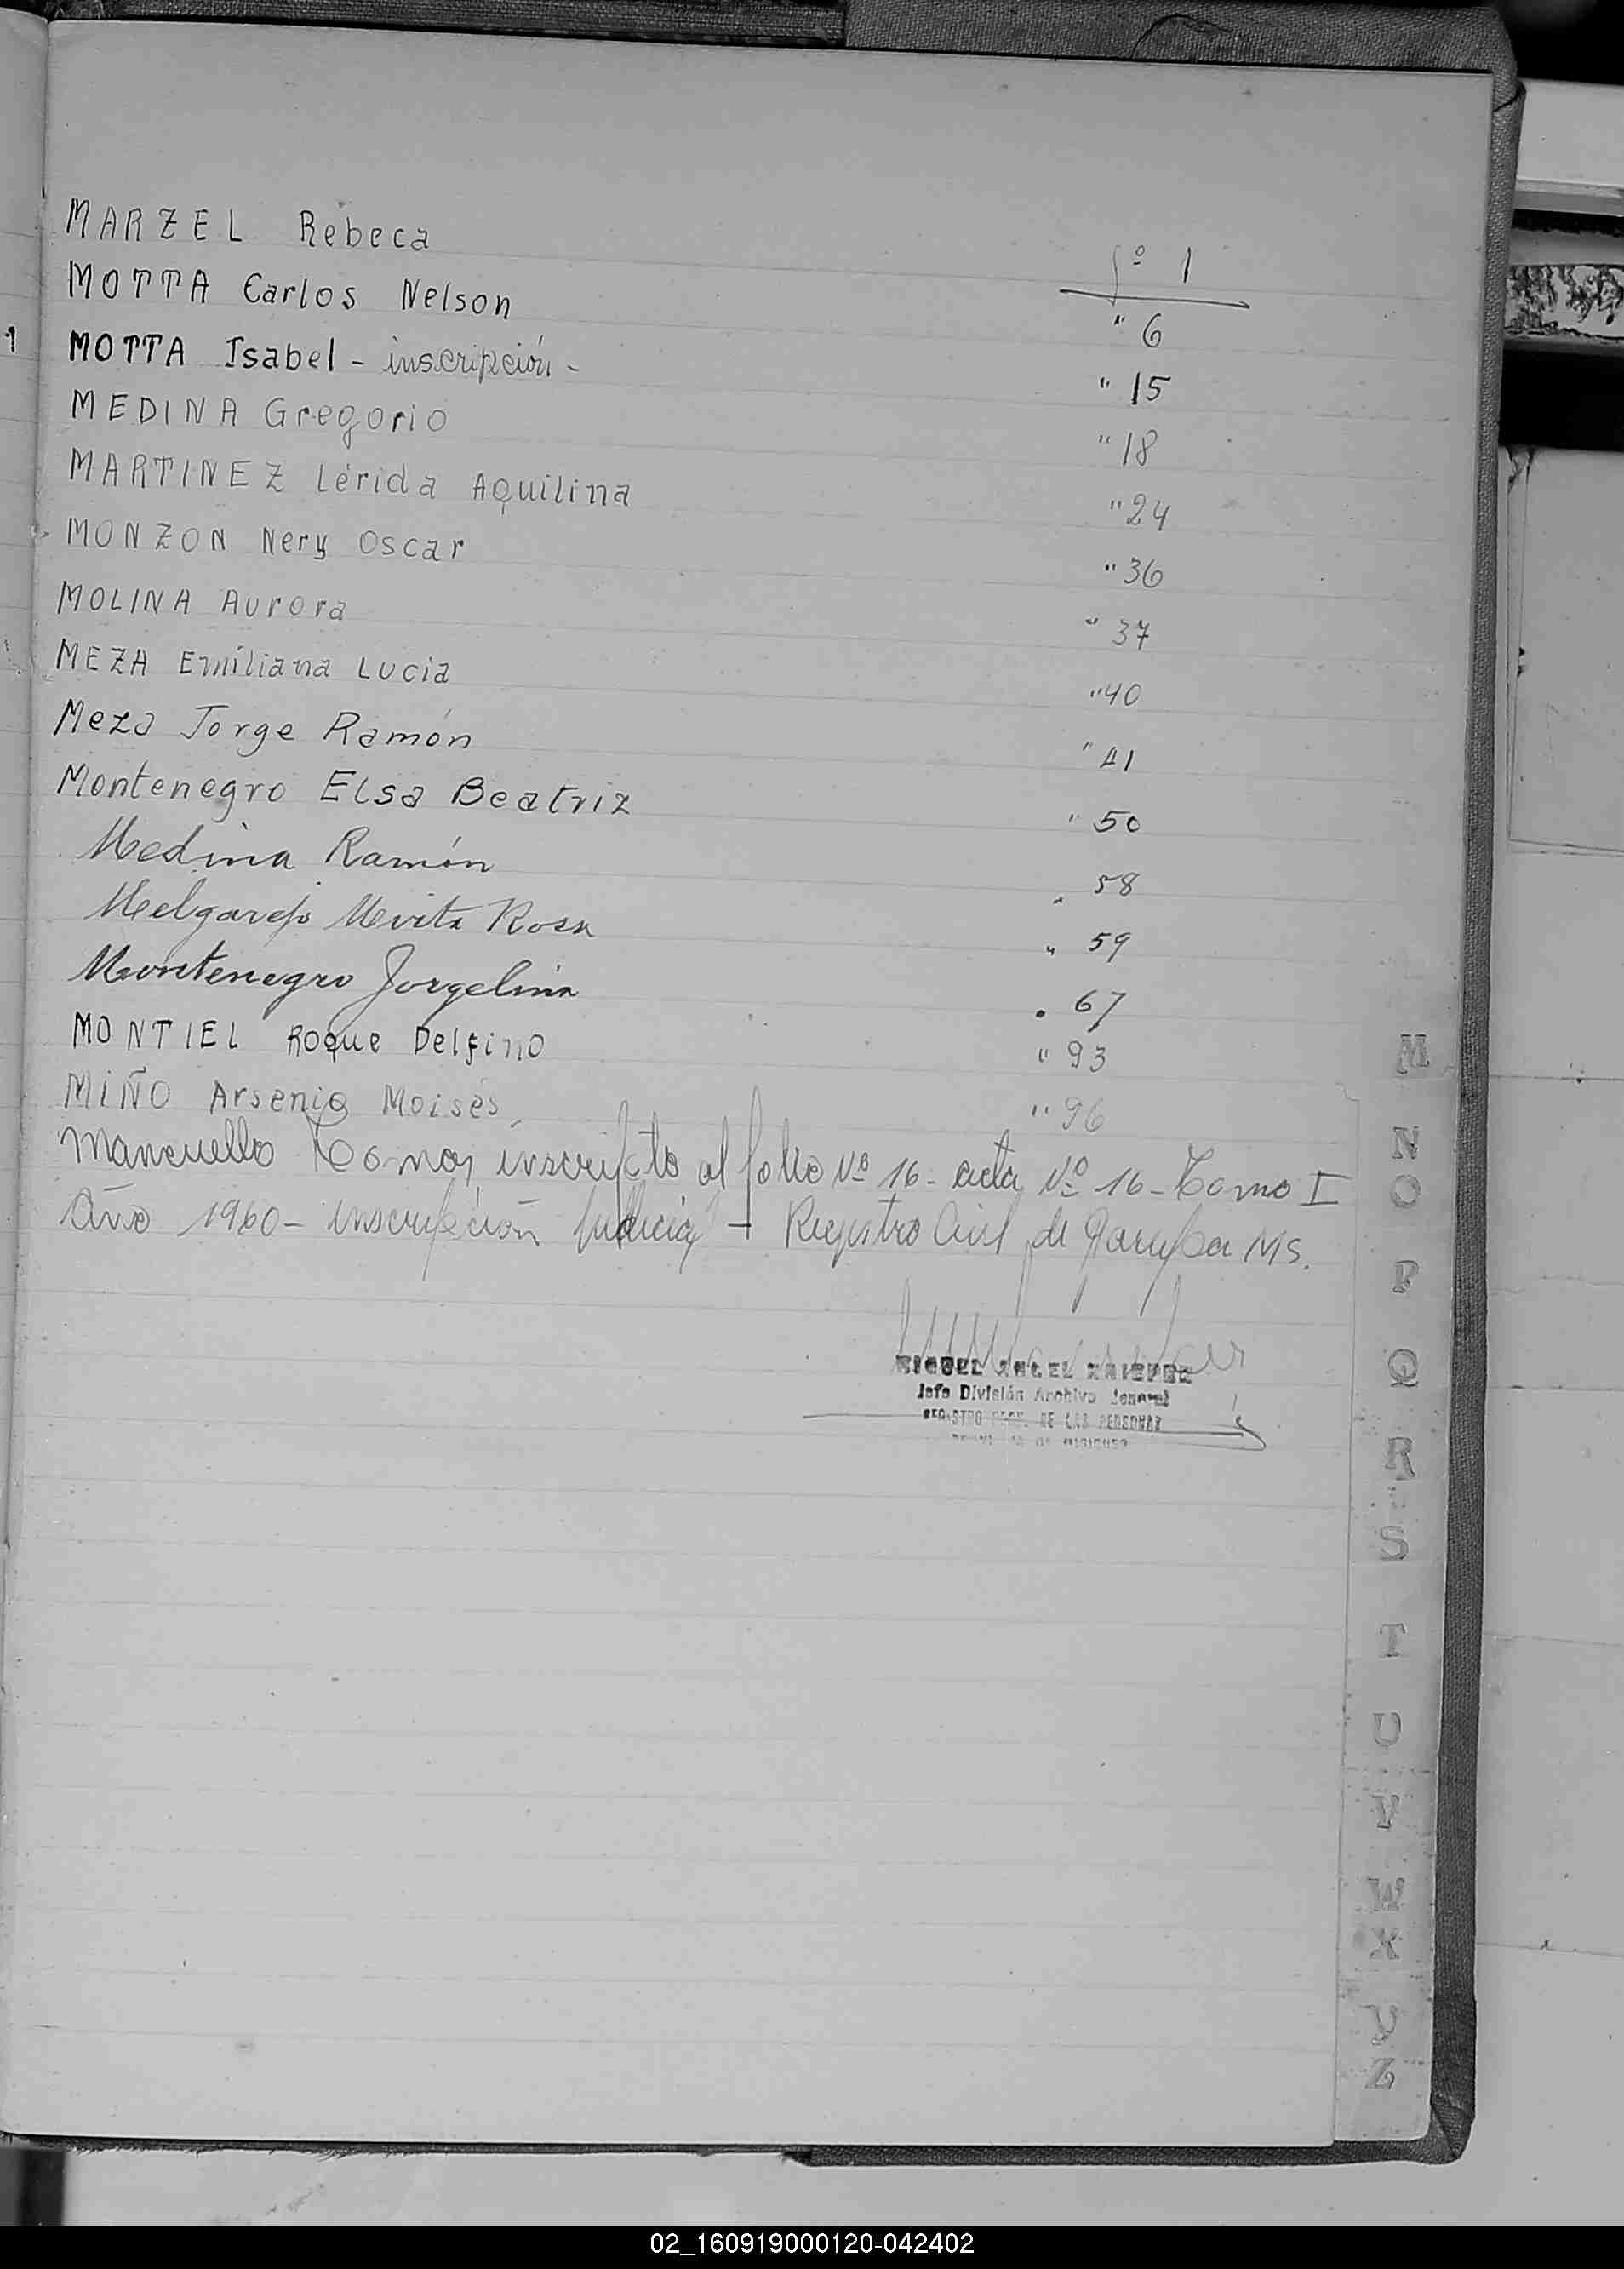 MARZEL Rebeca fº 1
MOTTA Carlos Nelson " 6
1 MOTTA Isabel - inscripción - " 15
MEDINA Gregorio " 18
MARTINEZ Lérida Aquilina " 24
MONZON Nery Oscar " 36
MOLINA Aurora " 37
MEZA Emiliana Lucia " 40
Meza Jorge Ramón " 41
Montenegro Elsa Beatriz " 50
Medina Ramón " 58
Melgarejo Rosa " 59
Montenegro Jorgelina " 67
MONTIEL Roque Delfino " 93
MIÑO Arsenio Moisés " 96
Mancuello Tomas inscripto al folio Nº 16 - acta Nº 16 - Tomo I
Año 1960 - inscripción Judicial - Registro Civil de Garupa MS.
MIGUEL ANGEL
Jefe División Archivo General
REGISTRO PROV. DE LAS PERSONAS
M
N
O
P
Q
R
S
T
U
V
W
X
Y
Z
02_160919000120-042402